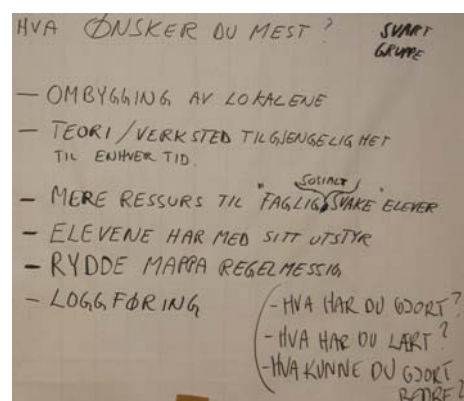 HVA ØNSKER DU MEST?
SVART
GRUPPE
- OMBYGGING AV LOKALENE
- TEORI/VERKSTED TILGJENGELIGHET
TIL ENHVER TID.
SOSIALT
- MERE RESSURS TIL "FAGLIG, SVAKE" ELEVER
- ELEVENE HAR MED SITT UTSTYR
- RYDDE MAPPA REGELMESSIG
- LOGGFØRING
- HVA HAR DU GJORT?
- HVA HAR DU LÆRT?
- HVA KUNNE DU GJORT
BEDRE?